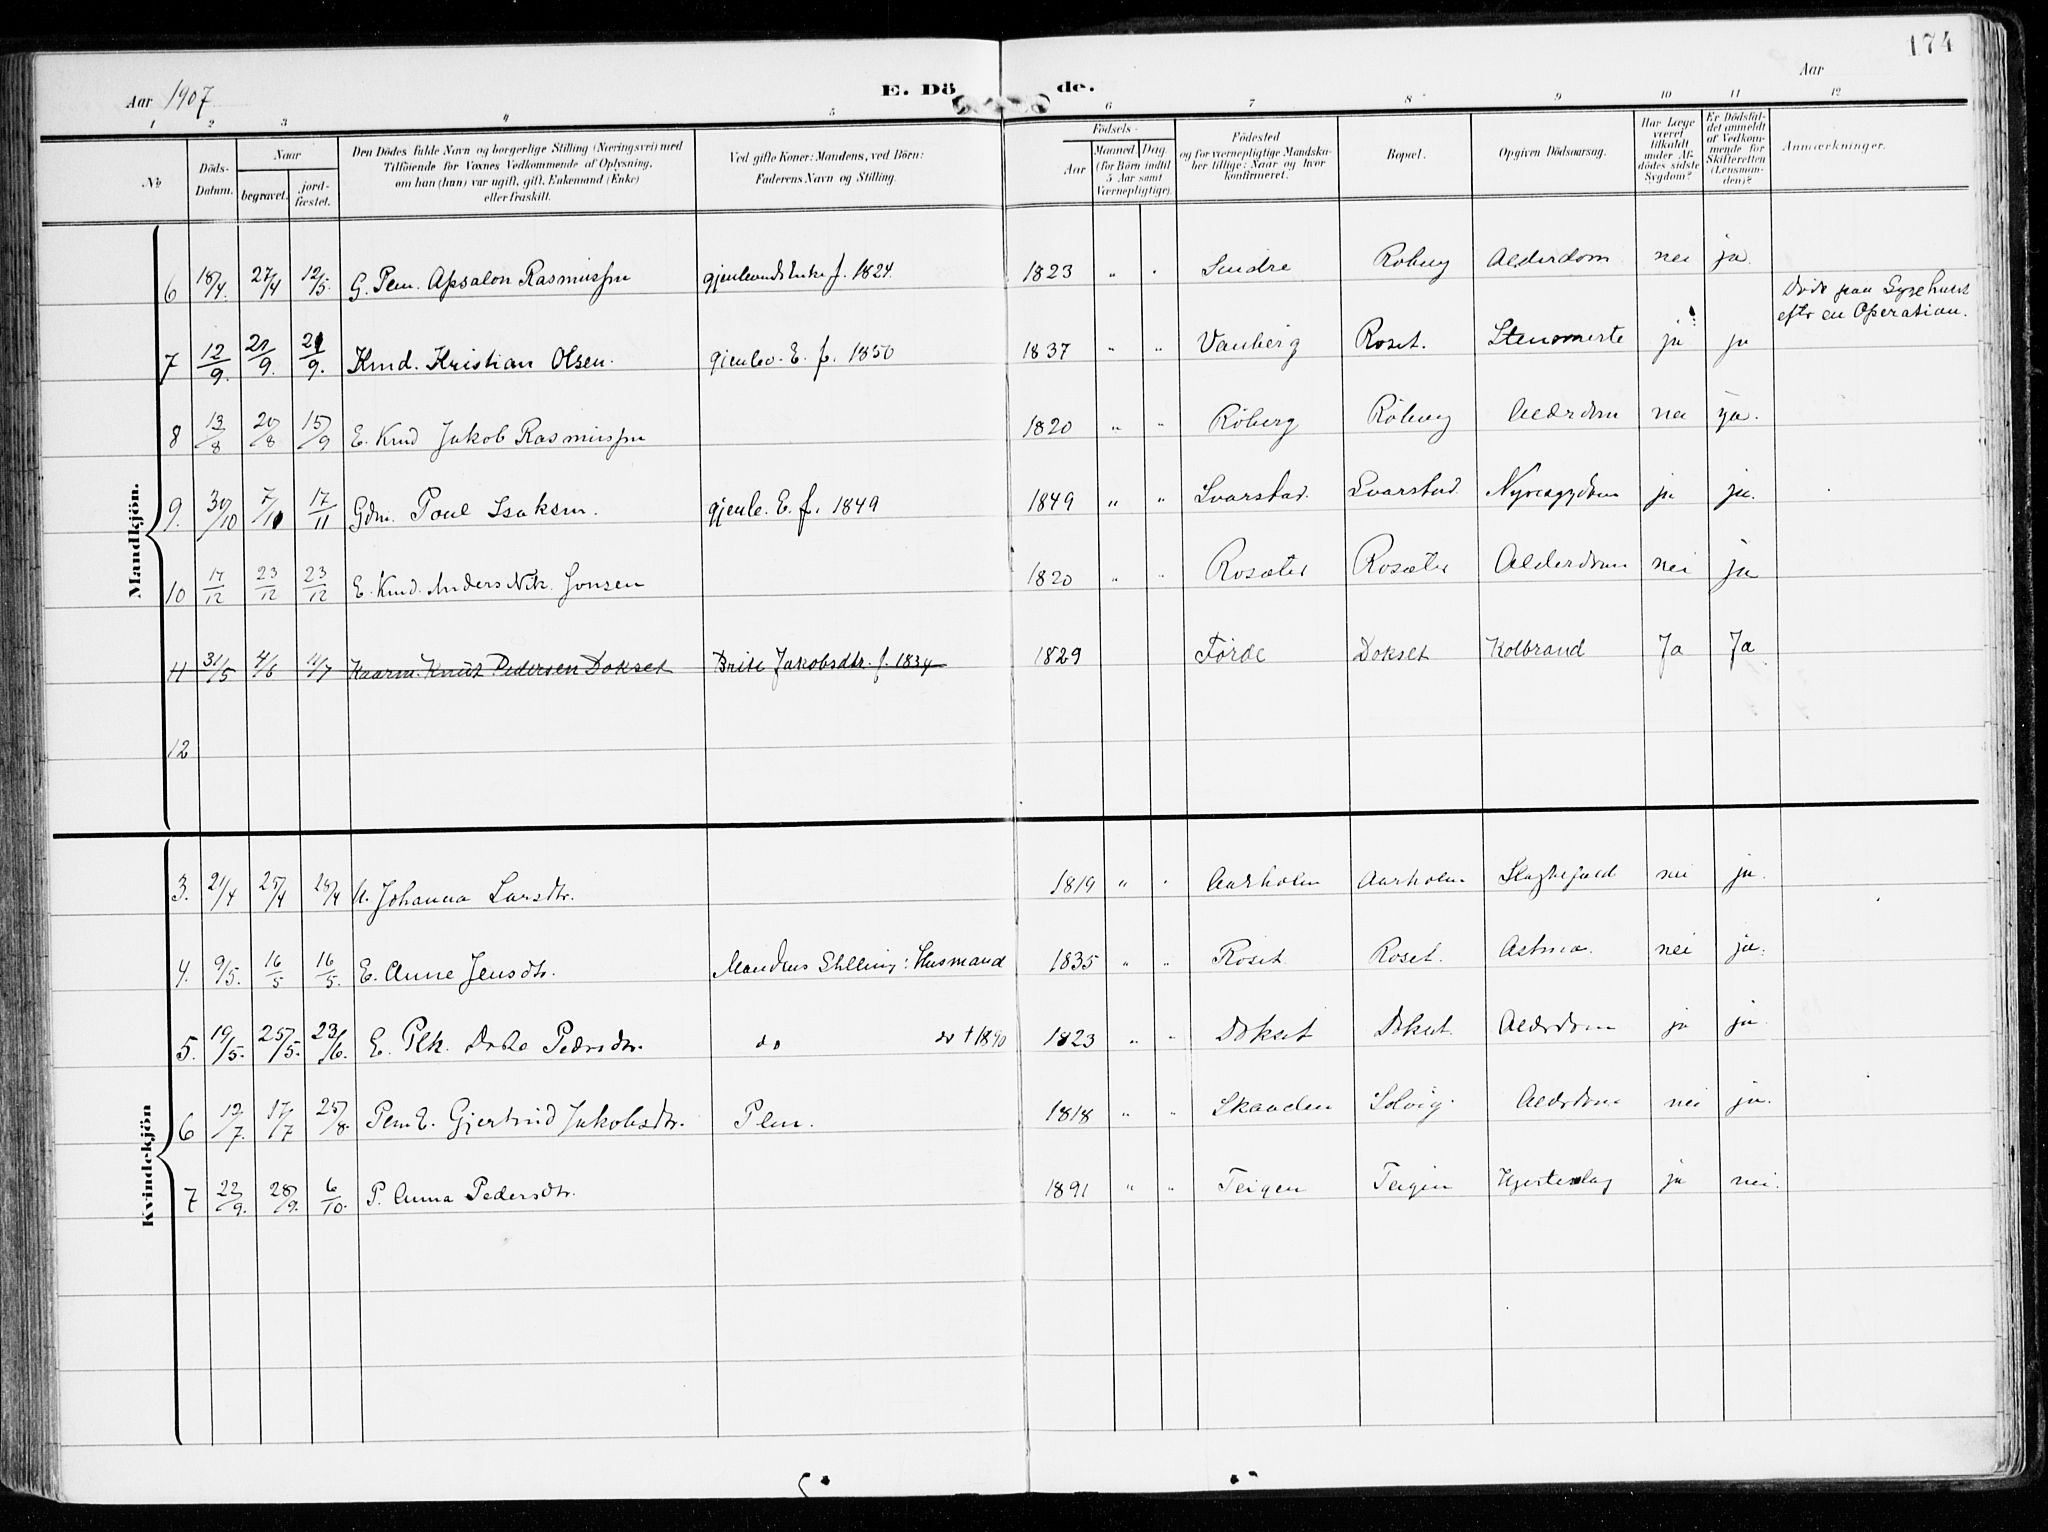 174
Aar 1907
E. Dö de.
Aar
1 2 3 4 5 6 7 8 9 10 11 12
No.
Döds-Datum.
Naar
begravet.
jord-fæstet.
Den Dödes fulde Navn og borgerlige Stilling (Næringsvei) med
Tilföiende for Voxnes Vedkommende af Oplysning,
om han (hun) var ugift, gift, Enkemand (Enke)
eller fraskilt.
Ved gifte Koner: Mandens, ved Börn:
Faderens Navn og Stilling.
Födsels-
Aar
Maaned. Dag.
(for Börn indtil
5 Aar samt
Værnepligtige).
Födested
og for værnepligtige Mandska-
ber tillige: Naar og hvor
konfirmeret.
Bopæl.
Opgiven Dödsaarsag.
Har Læge
været
tilkaldt
under Af-
dödes sidste
Sygdom?
Er Dödsfal-
det anmeldt
af Vedkom-
mende for
Skifteretten
(Lensman-
den)?
Anmærkninger.
Mandkjön.
6 18/4. 27/4 12/5. G. Pem. Apsalon Rasmussen gjenlevende Enke f. 1824. 1823 " " Sindre Røberg Alderdom nei ja.
Døde paa Sygehuset
eftr en Operation.
7 12/9. 21/9. 21/9. Kmd. Kristian Olsen. gjenlev. E. f. 1850 1837 " " Vanberg Roset. ja ja
8 13/8 20/8 15/9 E. Kmd Jakob Rasmussen 1820 " " Røberg Røberg Alderdom nei ja.
9. 30/10 7/11 17/11 Gdm. Poul Isaksen. gjenle. E. f. 1849 1849 " " Svarstad. Svarstad. Nyresygdom ja ja.
10 17/12 23/12 23/12 E. Kmd. Anders Nik. Jonsen 1820 " " Rosæter Rosæter Alderdom nei ja
11 31/5 4/6 11/7 Kaarm. Knut Pedersen Dokset Brite Jakobsdtr. f. 1834 1829 Förde Dokset Kolbrand Ja Ja
12
Kvindekjön
3. 21/4 25/4 28/4 U. Johanna Larsdtr. 1819 " " Aarholen Aarholen nei ja.
4. 9/5. 16/5 16/5. E. Anne Jensdtr. Mandens Stilling: Husmand 1835 " " Roset Roset. Astma. nei ja.
5. 19/5. 25/5. 23/6. E. Plk. Pedersdtr. do do † 1890 1823 " " Dokset Dokset. Alderdom ja ja.
6 12/7. 17/7 25/8. Pem E. Gjertrud Jakobsdtr. Plm. 1818 " " Skaaden Solvig. Alderdom nei ja.
7 22/9. 28/9. 6/10. P. Anna Pedersdtr. 1891 " " Teigen Teigen Hjerteslag ja nei.